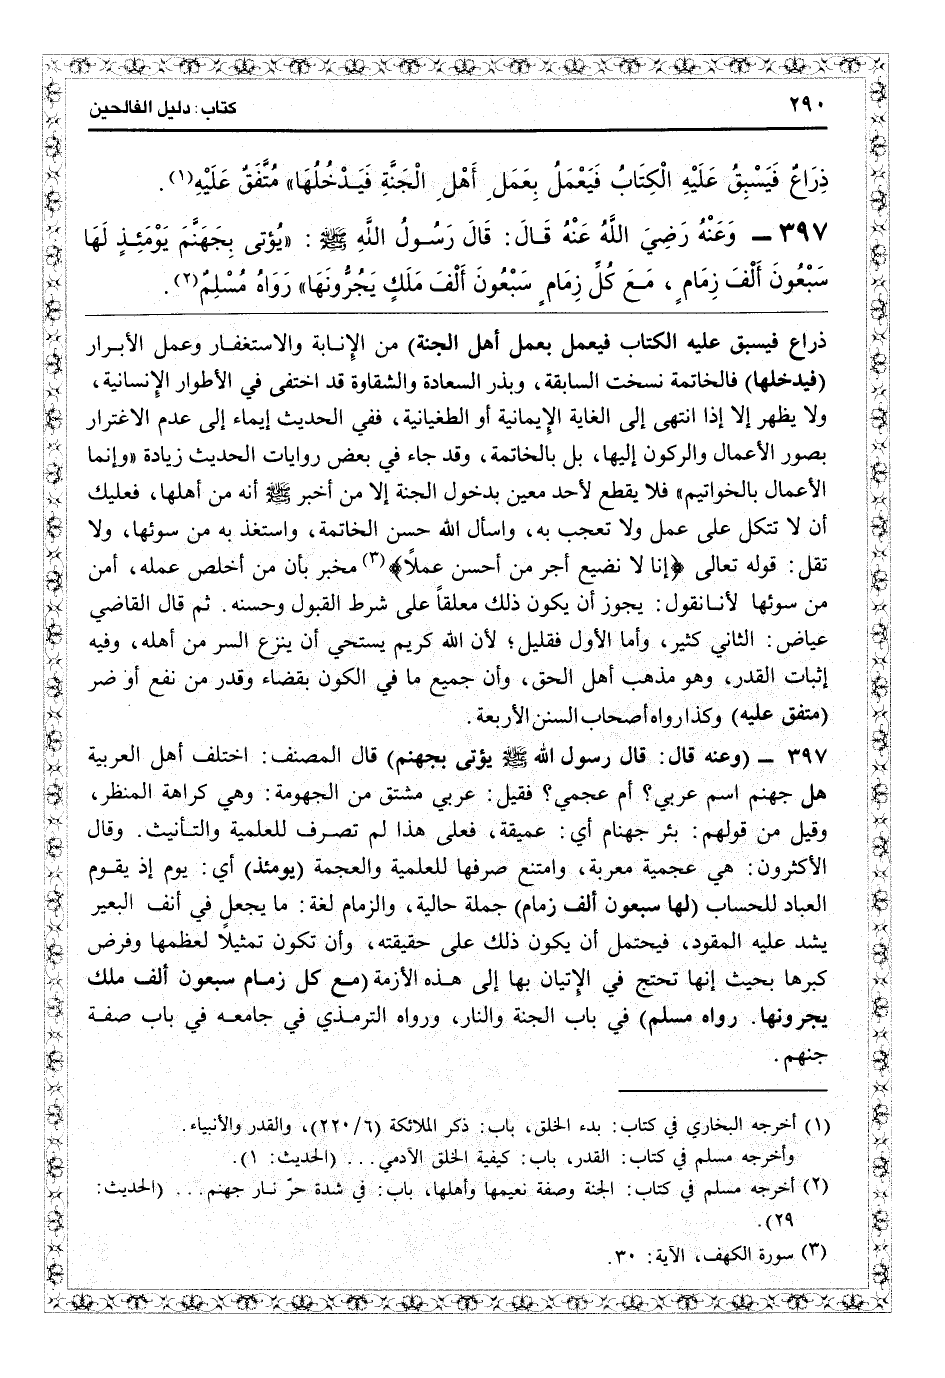 ٢٩٠
كتاب: دليل الفالحين
ذِرَاعٌ فَيَسْبِقُ عَلَيْهِ الْكِتَابُ فَيَعْمَلُ بِعَمَلِ أَهْلِ الْجَنَّةِ فَيَدْخُلُهَا» مُتَّفَقٌ عَلَيْهِ(١).
٣٩٧ ــ وَعَنْهُ رَضِيَ اللَّهُ عَنْهُ قَالَ: قَالَ رَسُولُ اللَّهِ ﷺ: «يُؤتى بِجَهَنَّمَ يَوْمَئِذٍ لَهَا
سَبْعُونَ أَلْفَ زِمَامٍ، مَعَ كُلِّ زِمَامٍ سَبْعُونَ أَلْفَ مَلَكٍ يَجُرُّونَهَا» رَوَاهُ مُسْلِمٌ(٢).
ذراع فيسبق عليه الكتاب فيعمل بعمل أهل الجنة) من الإنابة والاستغفار وعمل الأبرار
(فيدخلها) فالخاتمة نسخت السابقة، وبذر السعادة والشقاوة قد اختفى في الأطوار الإنسانية،
ولا يظهر إلا إذا انتهى إلى الغاية الإيمانية أو الطغيانية، ففي الحديث إيماء إلى عدم الاغترار
بصور الأعمال والركون إليها، بل بالخاتمة، وقد جاء في بعض روايات الحديث زيادة «وإنما
الأعمال بالخواتيم» فلا يقطع لأحد معين بدخول الجنة إلا من أخبر ﷺ أنه من أهلها، فعليك
أن لا تتكل على عمل ولا تعجب به، واسأل الله حسن الخاتمة، واستغذ به من سوئها، ولا
تقل: قوله تعالى ﴿إنا لا نضيع أجر من أحسن عملاً﴾(٣) مخبر بأن من أخلص عمله، أمن
من سوئها لأنا نقول: يجوز أن يكون ذلك معلقاً على شرط القبول وحسنه. ثم قال القاضي
عياض: الثاني كثير، وأما الأول فقليل؛ لأن الله كريم يستحي أن ينزع السر من أهله، وفيه
إثبات القدر، وهو مذهب أهل الحق، وأن جميع ما في الكون بقضاء وقدر من نفع أو ضر
(متفق عليه) وكذا رواه أصحاب السنن الأربعة.
٣٩٧ ــ (وعنه قال: قال رسول الله ﷺ يؤتى بجهنم) قال المصنف: اختلف أهل العربية
هل جهنم اسم عربي؟ أم عجمي؟ فقيل: عربي مشتق من الجهومة: وهي كراهة المنظر،
وقيل من قولهم: بئر جهنام أي: عميقة، فعلى هذا لم تصرف للعلمية والتأنيث. وقال
الأكثرون: هي عجمية معربة، وامتنع صرفها للعلمية والعجمة (يومئذ) أي: يوم إذ يقوم
العباد للحساب (لها سبعون ألف زمام) جملة حالية، والزمام لغة: ما يجعل في أنف البعير
يشد عليه المقود، فيحتمل أن يكون ذلك على حقيقته، وأن تكون تمثيلاً لعظمها وفرض
كبرها بحيث إنها تحتج في الإتيان بها إلى هذه الأزمة (مع كل زمام سبعون ألف ملك
يجرونها. رواه مسلم) في باب الجنة والنار، ورواه الترمذي في جامعه في باب صفة
جنهم.
(١) أخرجه البخاري في كتاب: بدء الخلق، باب: ذكر الملائكة (٦/٢٢٠)، والقدر والأنبياء.
وأخرجه مسلم في كتاب: القدر، باب: كيفية الخلق الآدمي... (الحديث: ١).
(٢) أخرجه مسلم في كتاب: الجنة وصفة نعيمها وأهلها، باب: في شدة حرّ نار جهنم... (الحديث:
٢٩).
(٣) سورة الكهف، الآية: ٣٠.